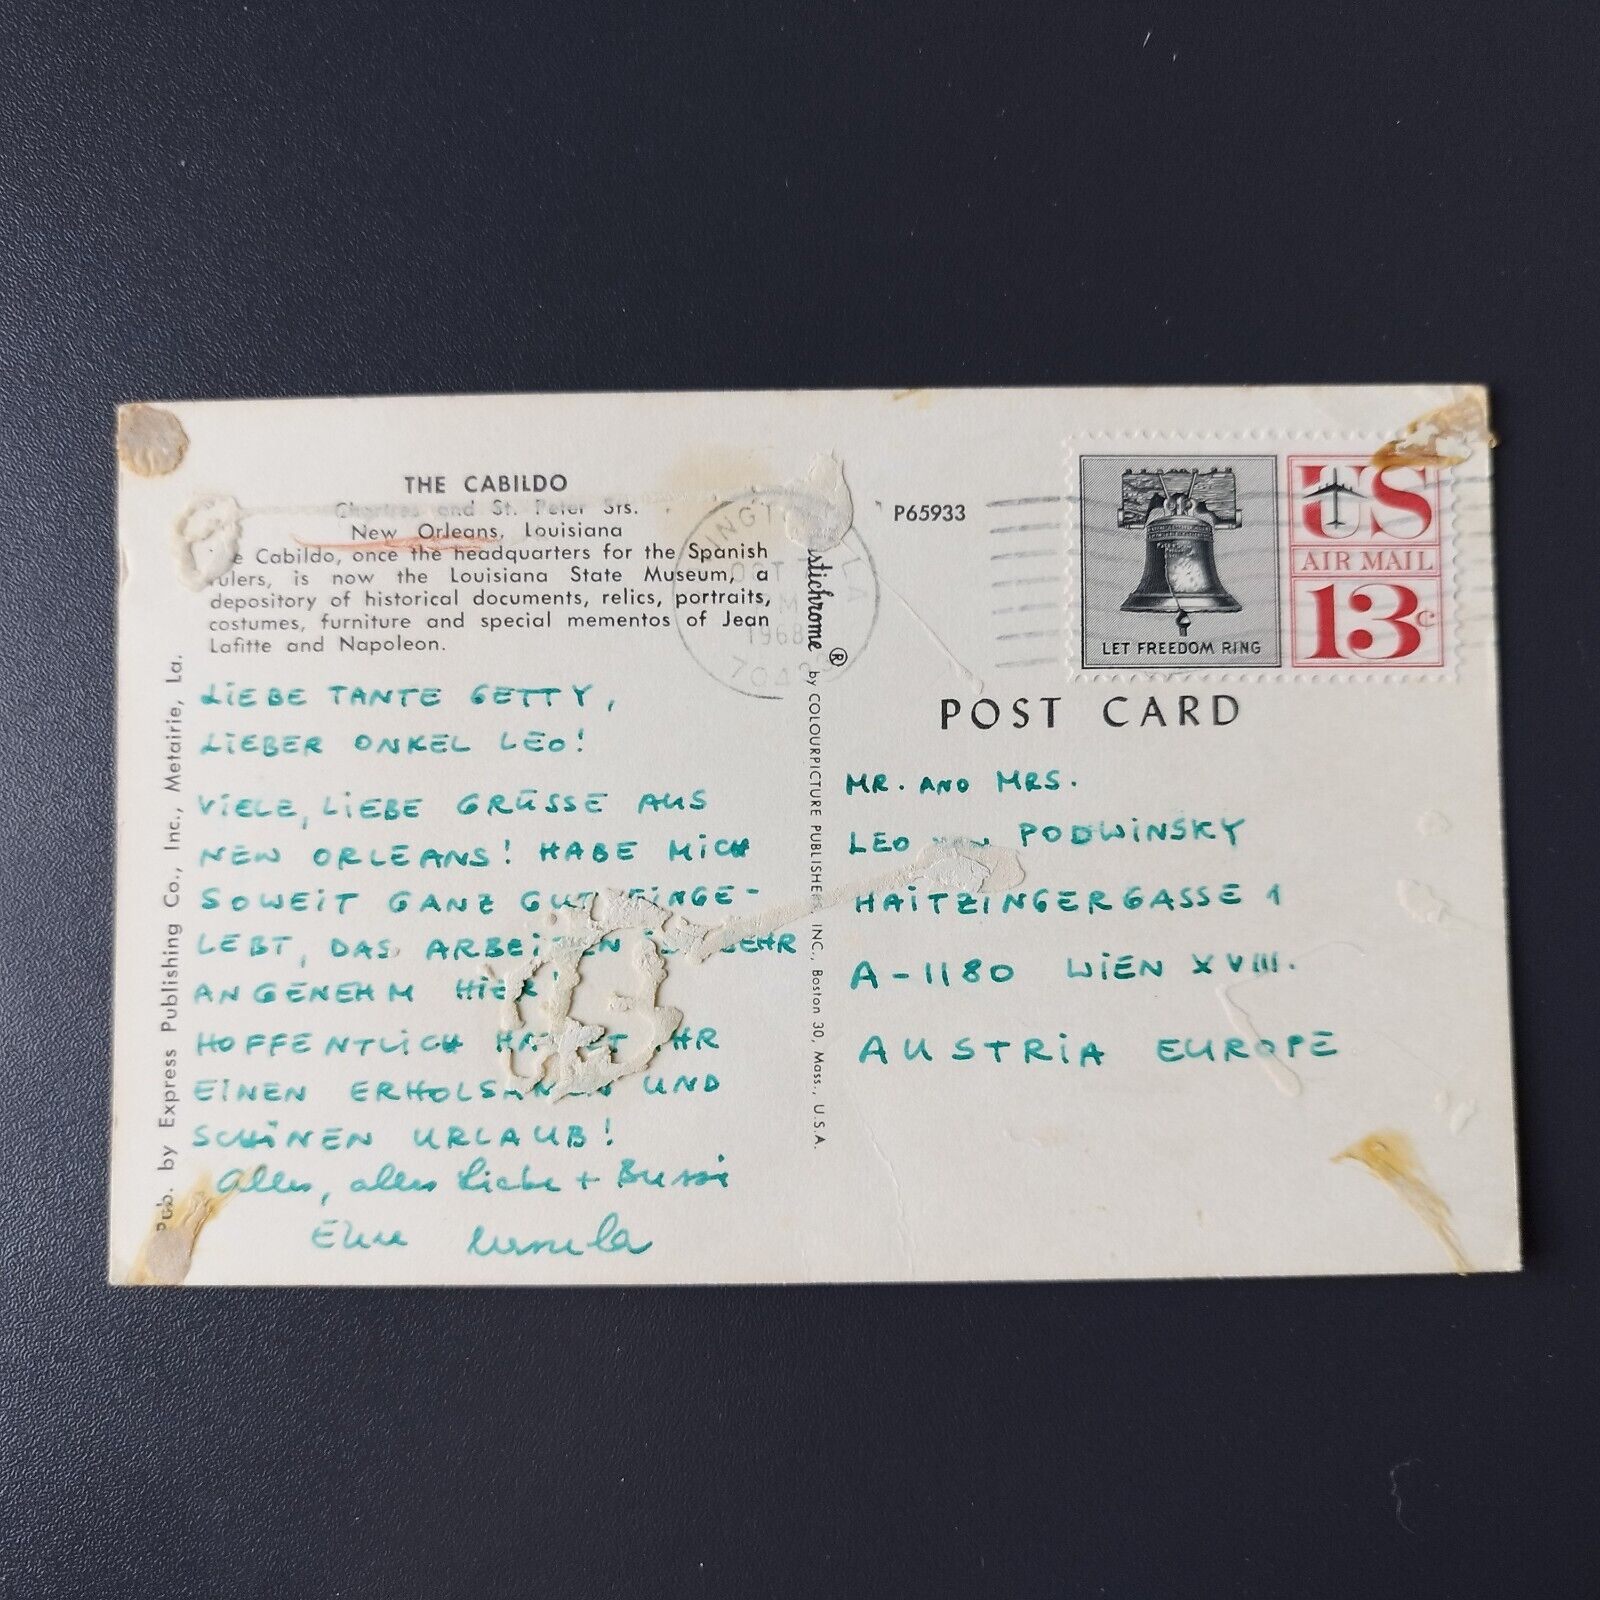 THE CABILDO
Chartres and St. Peter Sts.
New Orleans, Louisiana
Cabildo, once the headquarters for the Spanish
rulers, is now the Louisiana State Museum, a
depository of historical documents, relics, portraits,
costumes, furniture and special mementos of Jean
Lafitte and Napoleon.
LIEBE TANTE GETTY,
LIEBER ONKEL LEO!
VIELE, LIEBE GRÜSSE AUS
NEW ORLEANS! HABE MICH
SOWEIT GANZ GUT EINGE-
LEBT, DAS ARBEITEN IST SEHR
ANGENEHM HIER!
HOFFENTLICH HATTET IHR
EINEN ERHOLSAMEN UND
SCHÖNEN URLAUB!
Alles, alles Liebe + Bussi
Eure Ursula
Pub. by Express Publishing Co., Inc., Metairie, La.
OCT
PM
1968
P65933
stichrome ® by COLOURPICTURE PUBLISHERS, INC., Boston 30, Mass., U.S.A.
LET FREEDOM RING
US
AIR MAIL
13c
POST CARD
MR. AND MRS.
LEO PODWINSKY
HAITZINGERGASSE 1
A-1180 WIEN XVIII.
AUSTRIA EUROPE